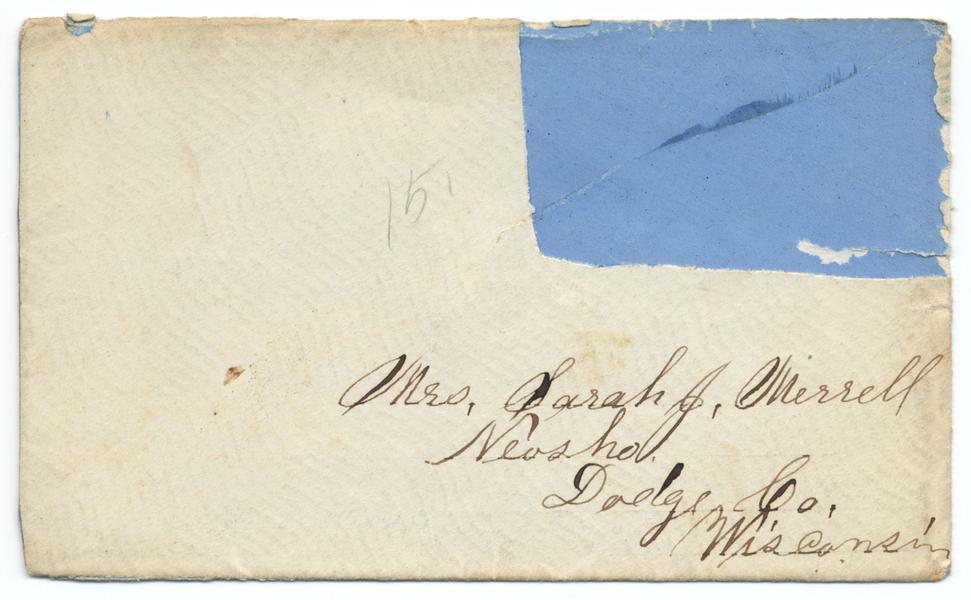 151
Mrs. Sarah J. Merrell
Neosho.
Dodge Co.
Wisconsin